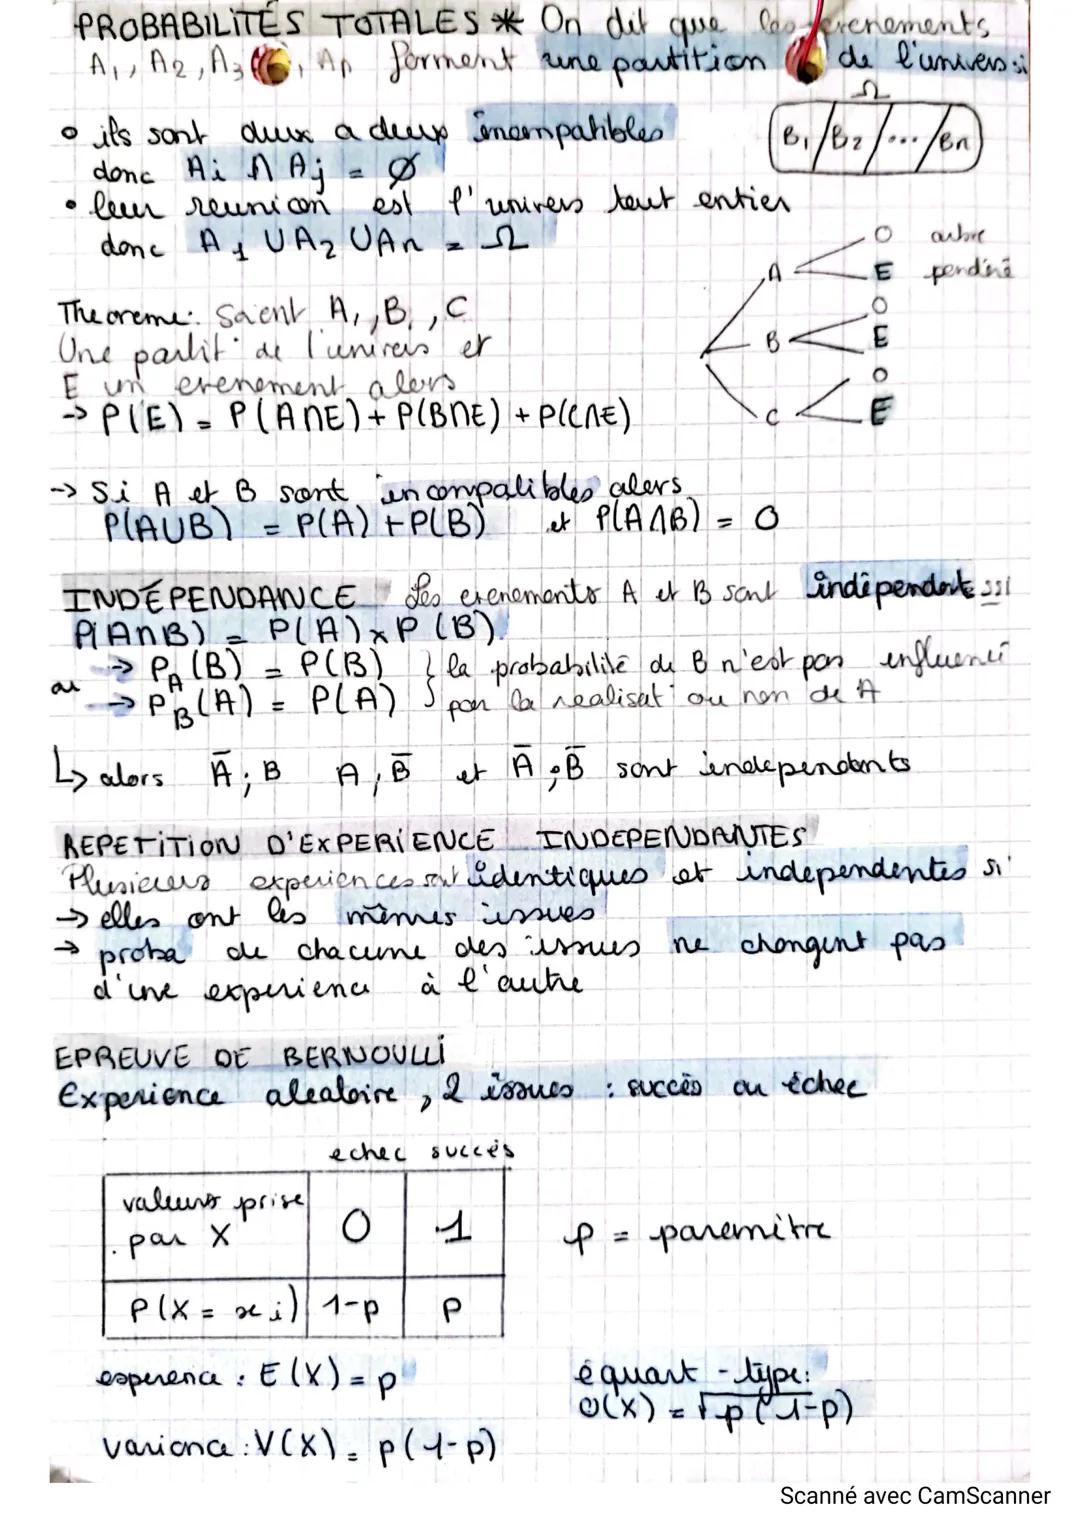 PROBABILITÉS TOTALES * On dit que les evenements
A1, A2, A3 , An forment une partition de l'univers si
Ω
B1 / B2 / ... / Bn
• ils sont deux a deux incompatibles
donc Ai ∩ Aj = Ø
• leur reunion est l'univers tout entier
donc A1 U A2 U An = Ω
O arbre
A E pondéré
O
B E
O
C E
Theoreme: Soient A, , B, , C
Une partit° de l'univers et
E un evenement alors
-> P(E) = P(A∩E) + P(B∩E) + P(C∩E)
-> Si A et B sont incompatibles alors
P(AUB) = P(A) + P(B) et P(A∩B) = 0
INDÉPENDANCE Les evenements A et B sont indépendants ssi
P(A∩B) = P(A) x P(B)
-> PA(B) = P(B) } la probabilité de B n'est pas influencé
ou -> PB(A) = P(A) } par la realisat° ou non de A
↳ alors Ā ; B A , B̄ et Ā ; B̄ sont independants
REPETITION D'EXPERIENCE INDEPENDANTES
Plusieurs experiences sont identiques et independentes si
-> elles ont les mêmes issues
-> proba de chacune des issues ne changent pas
d'une experience à l'autre
EPREUVE DE BERNOULLI
Experience aleatoire , 2 issues : succès ou échec
echec succès
valeurs prise par X 0 1
p = paremètre
P(X = xi) 1-p p
esperence : E(X) = p
équart-type:
σ(X) = √p(1-p)
variance : V(X) = p(1-p)
Scanné avec CamScanner